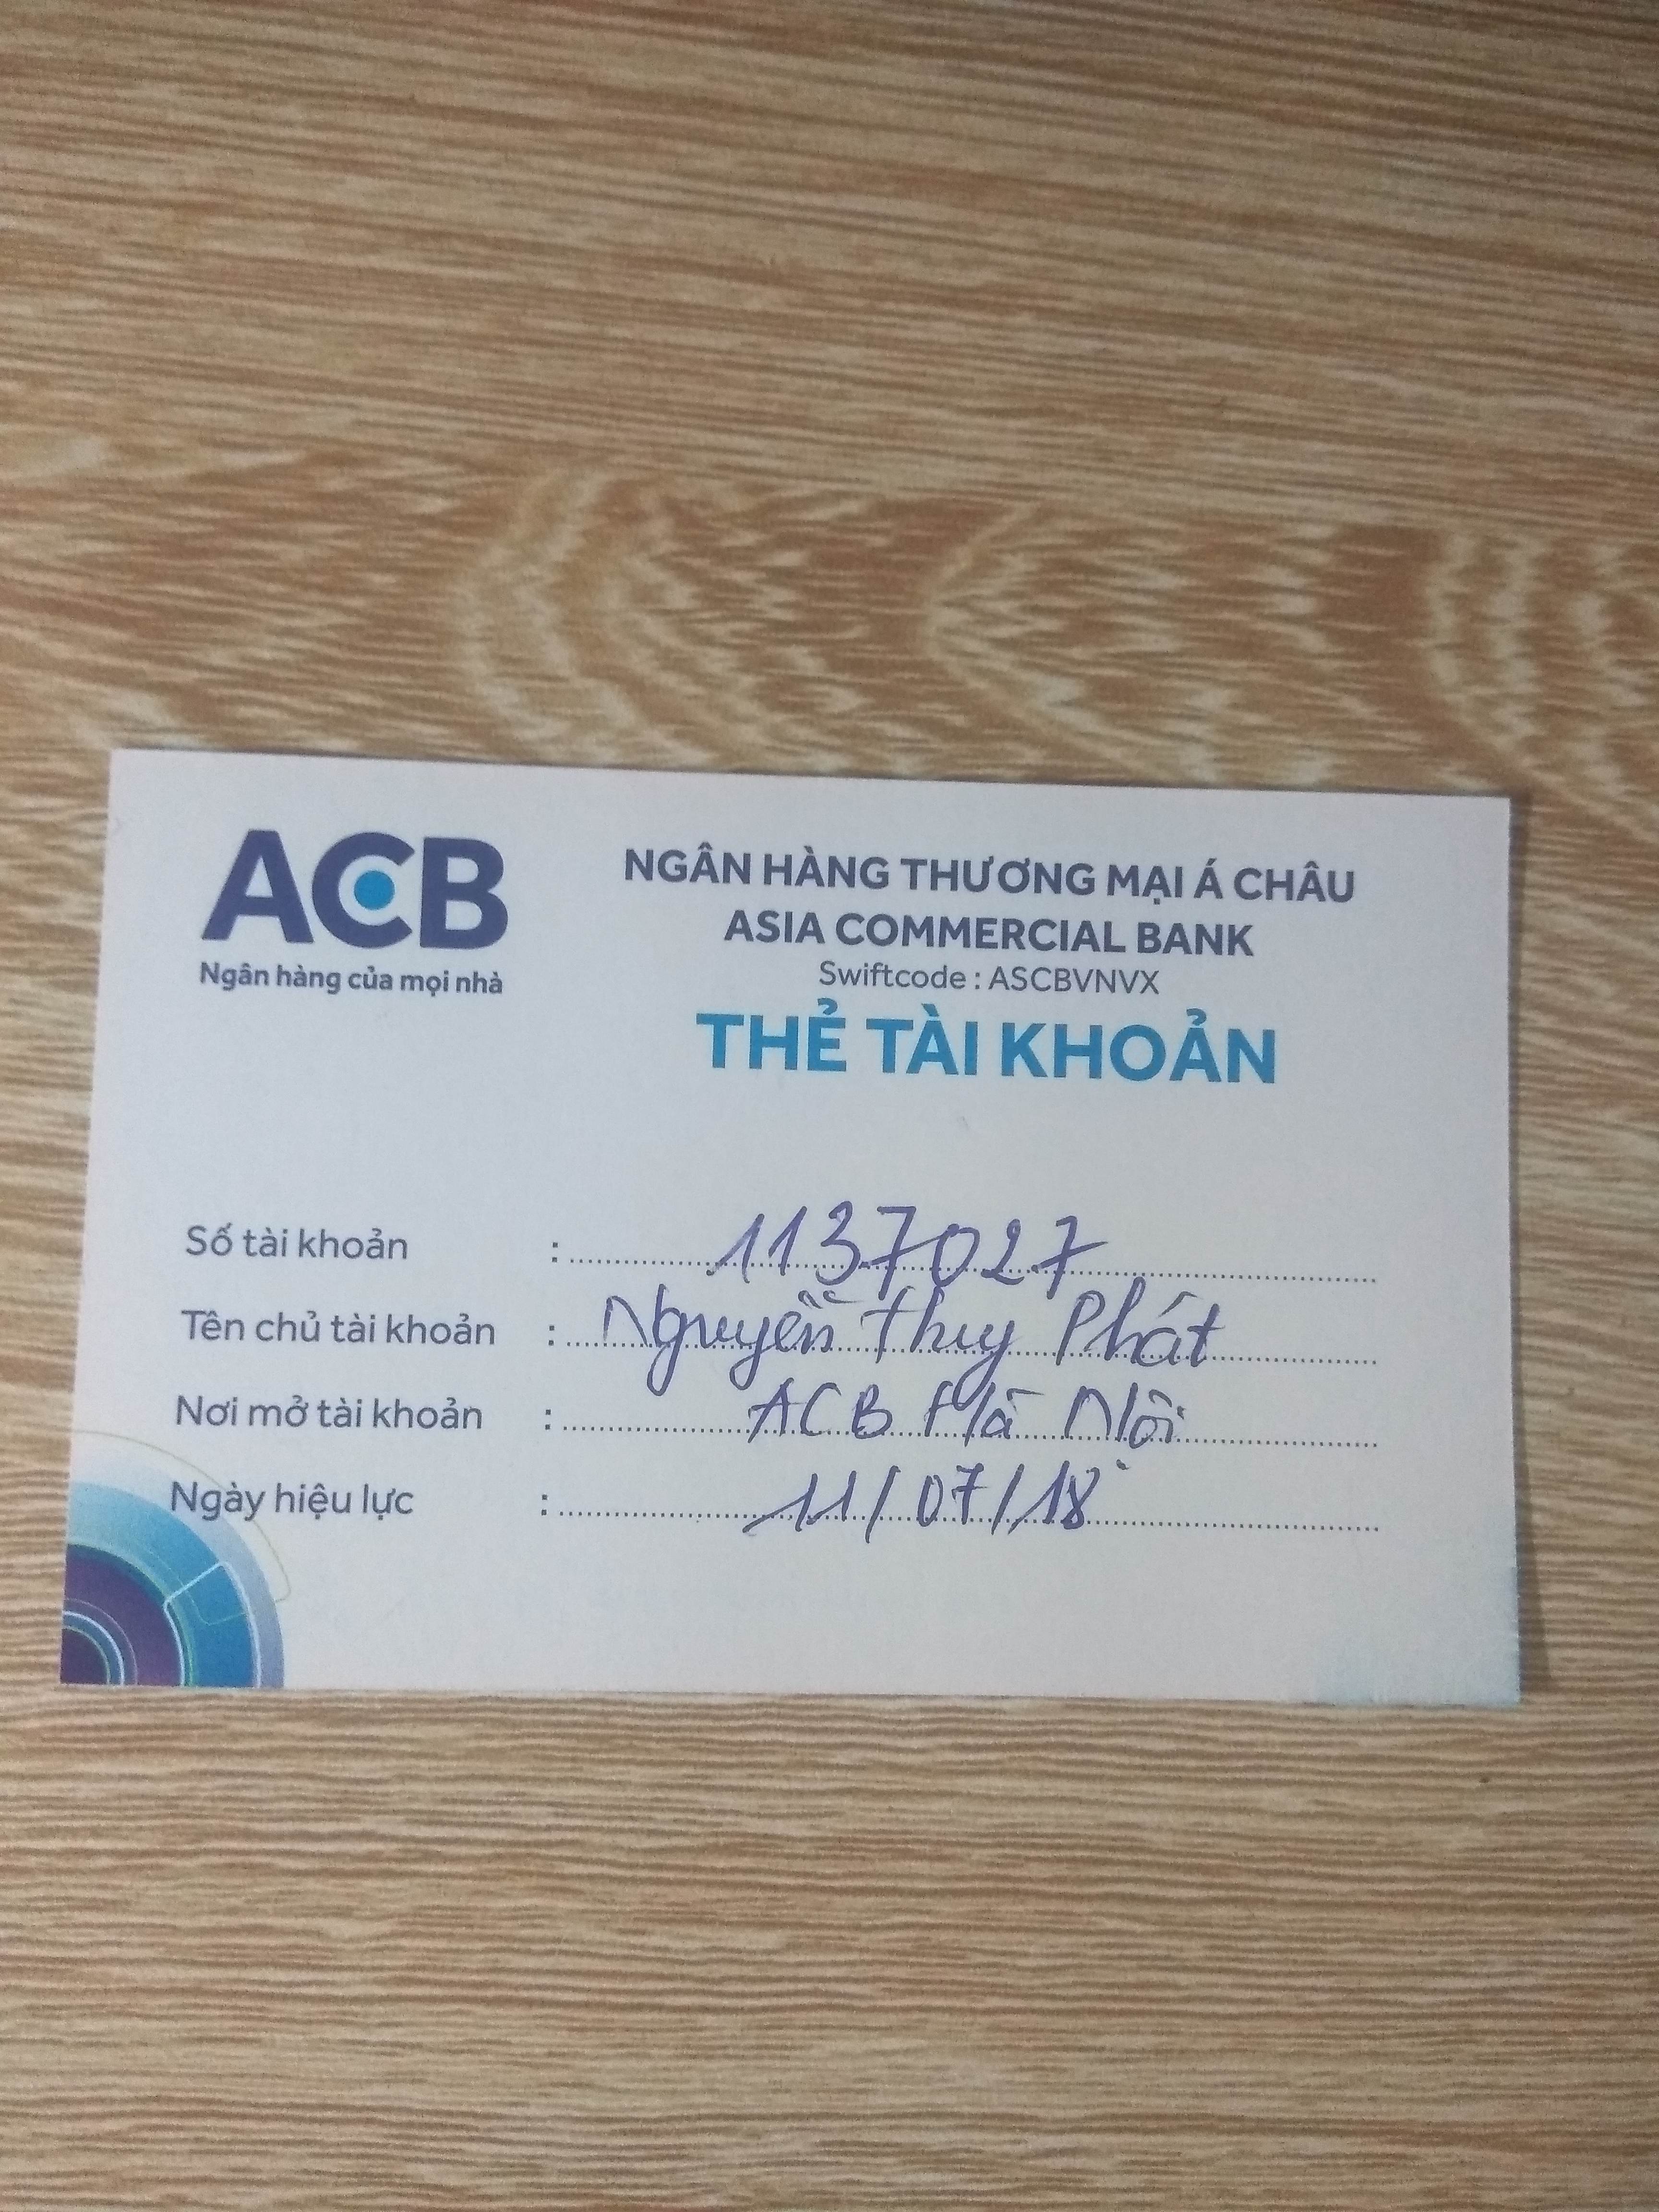 ACB
Ngân hàng của mọi nhà
NGÂN HÀNG THƯƠNG MẠI Á CHÂU
ASIA COMMERCIAL BANK
Swiftcode : ASCBVNVX
THẺ TÀI KHOẢN
Số tài khoản : 1137027
Tên chủ tài khoản : Nguyễn Thuy Phát
Nơi mở tài khoản : ACB Hà Nội
Ngày hiệu lực : 11/07/18